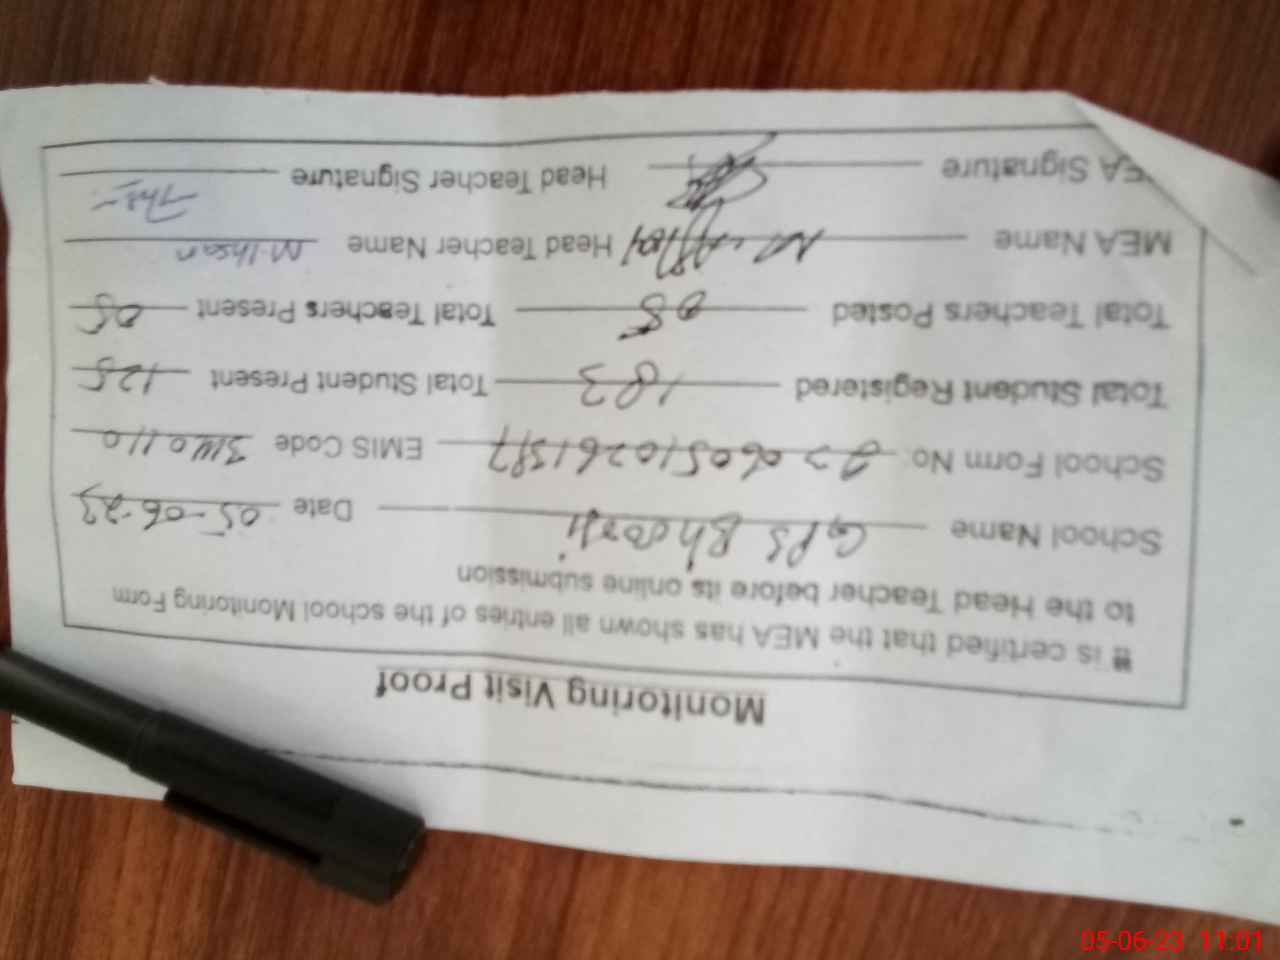 Monitoring Visit Proof
is certified that the MEA has shown all entries of the school Monitoring Form
to the Head Teacher before its online submission
School Name GPS Bhoorji Date 05-06-23
School Form No. EMIS Code
Total Student Registered 183 Total Student Present 125
Total Teachers Posted 05 Total Teachers Present 05
MEA Name Head Teacher Name M. Ihsan
EA Signature Head Teacher Signature
05-06-23 11:01